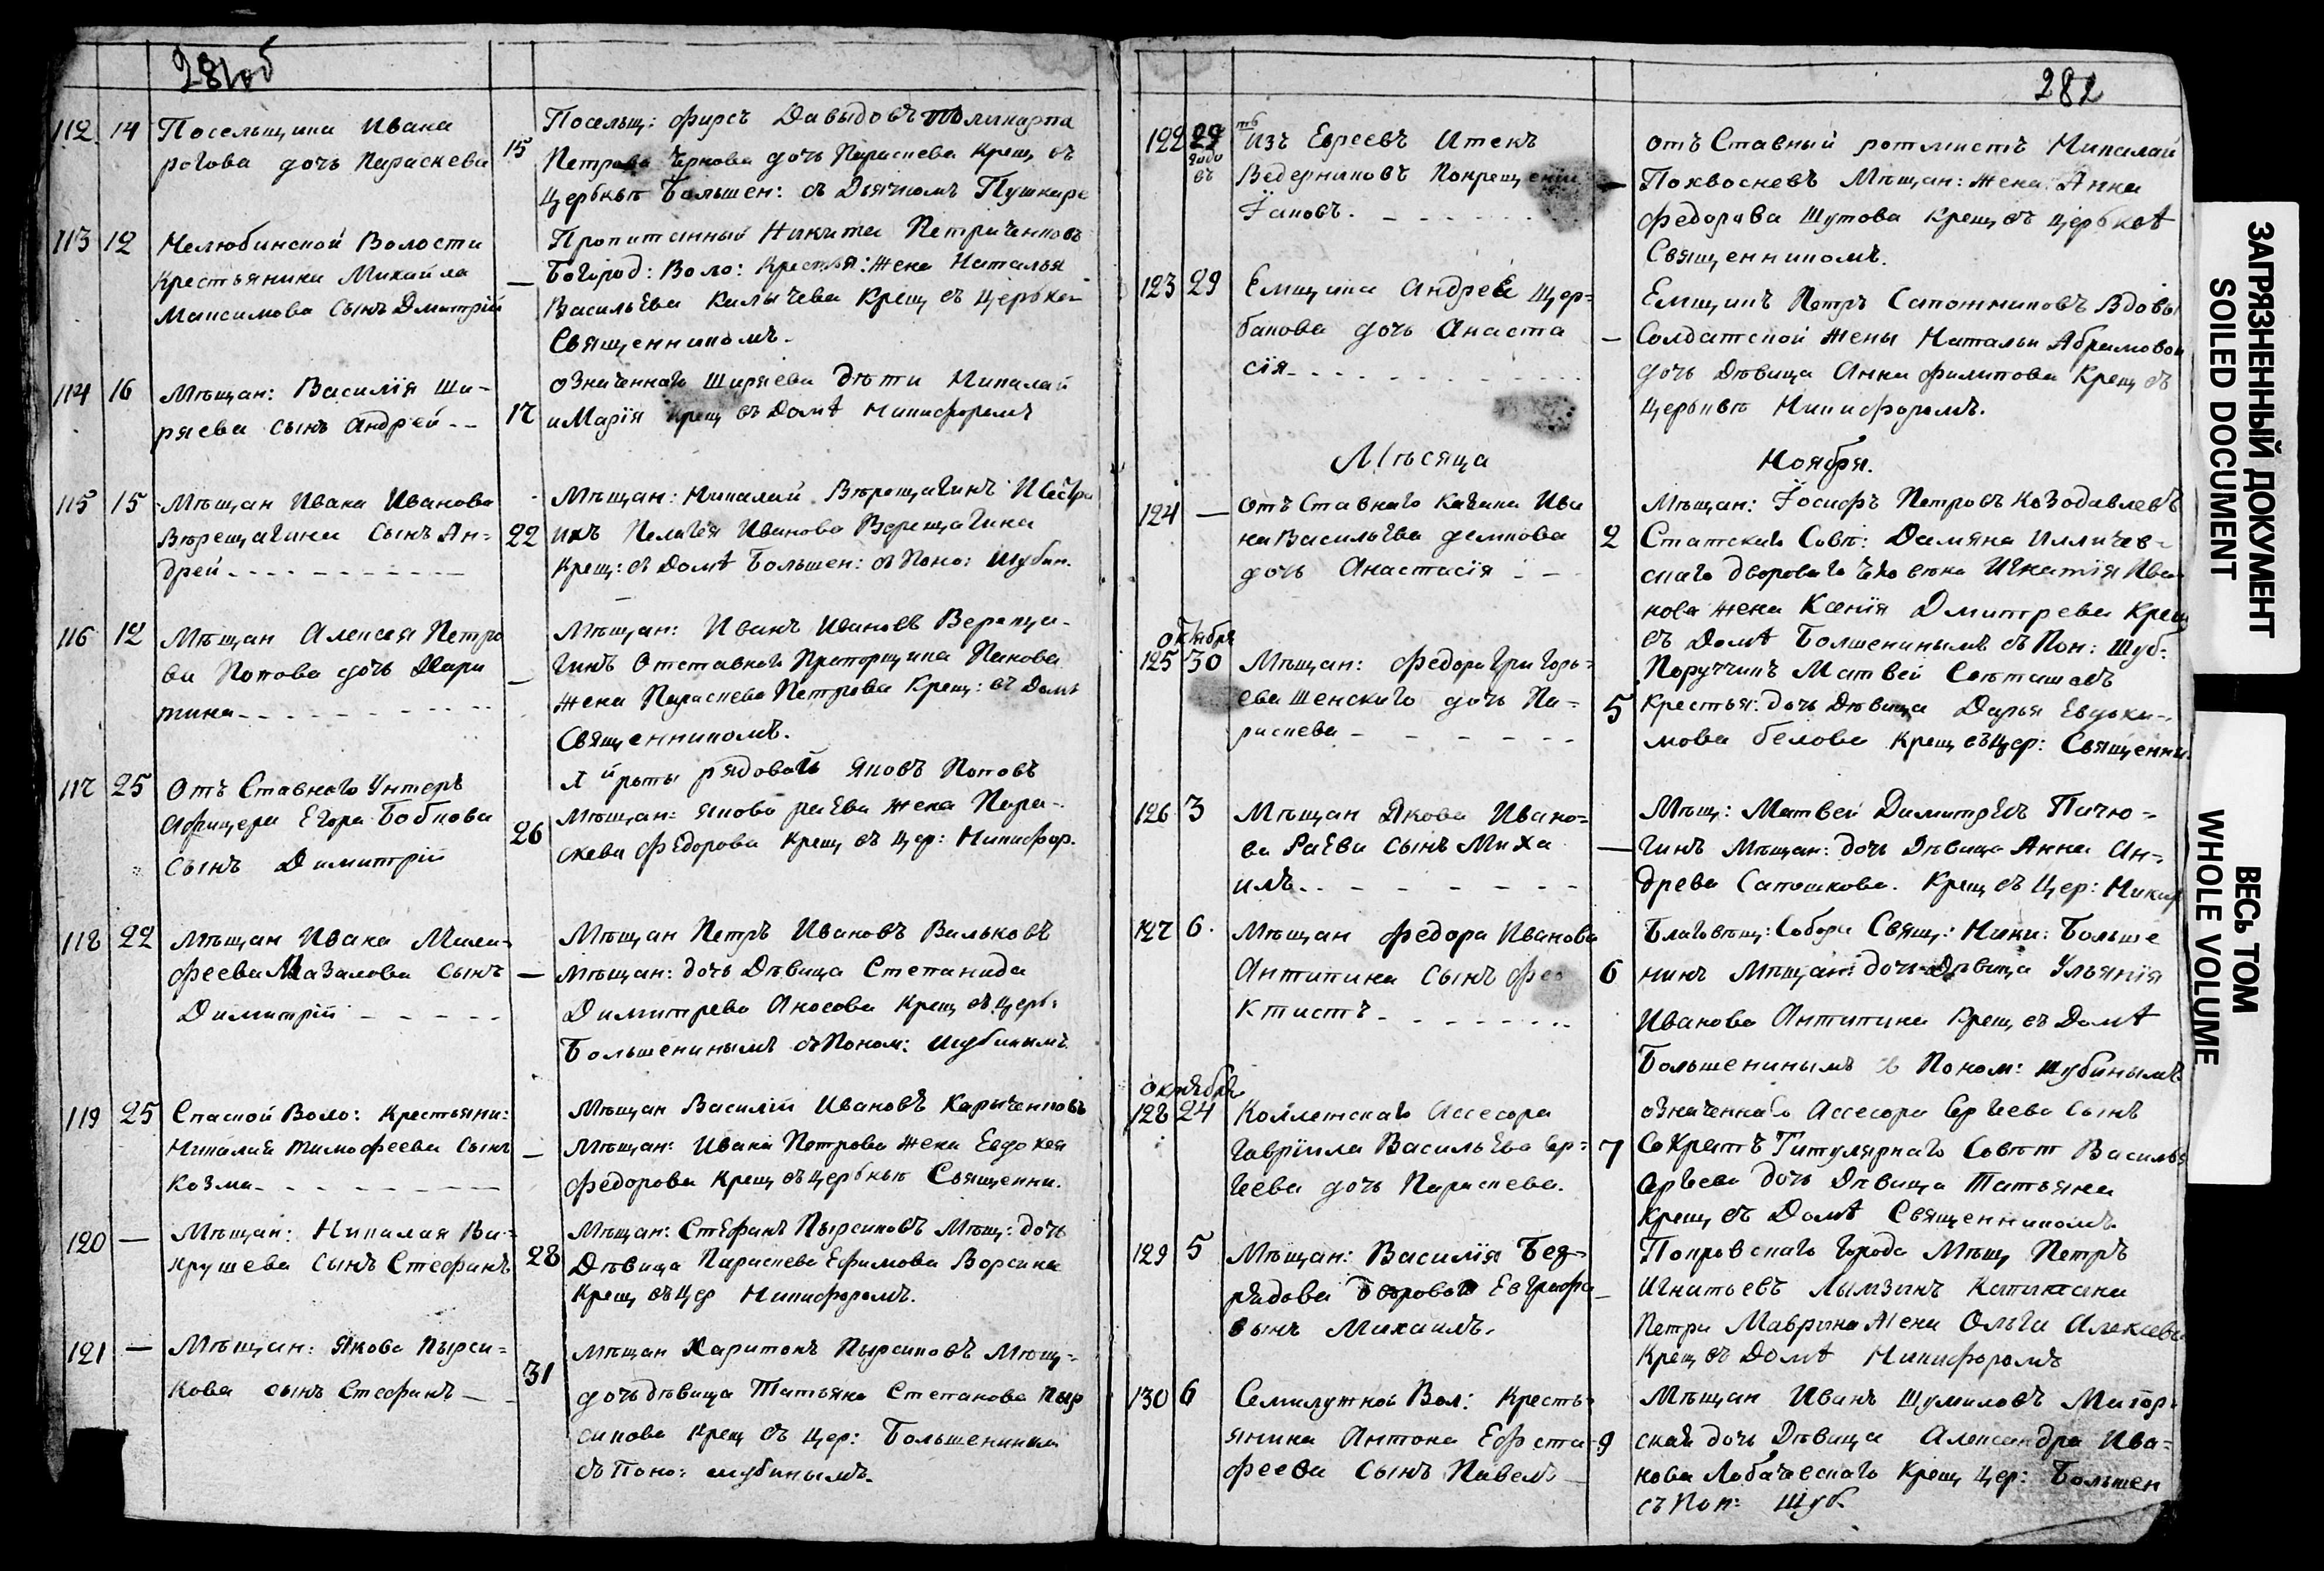 281об
112 14 Посельщика Ивана
рогова дочь Параскева
15 Посельщ: фирсъ Давыдовъ Поликарпа
Петрова Чернова дочь Параскева Крещ въ
Церьквѣ Большен: съ Дьячкомъ Пушкаре
113 12 Нелюбинской Волости
Крестьянина Михайла
Максимова Сынъ Дмитрій
— Пропитанный Никита Петриченковъ
Богород: Воло: Крестья: жена Наталья
Васильева Калычева Крещ въ Церькви
Священникомъ.
114 16 Мѣщан: Василія Ши-
ряева сынъ Андрей --
17 означеннаго Ширяева дѣти Николай
и Марія крещ въ Домѣ Никифоромъ
115 15 Мѣщан Ивана Иванова
Вѣрещагина Сынъ Ан-
дрей
22 Мѣщан: Николай Вѣрещагинъ И Сестра
ихъ Пелагея Иванова Верещагина
Крещ: въ Домѣ Большен: съ Поно: Шубин.
116 12 Мѣщан Алексея Петро
ва Попова дочь Мари
мина
— Мѣщан: Иванъ Ивановъ Вереща-
гинъ Отставнаго Прапорщика Панова
жена Параскева Петрова Крещ: въ Домѣ
Священникомъ.
117 25 Отъ Ставнаго Унтеръ
Афицера Егора Бобкова
Сынъ Димитрій
26 й роты рядовой Яковъ Поповъ
Мѣщан: Якова раева жена Пара-
скева Федорова Крещ въ Цер: Никифор.
118 22 Мѣщан Ивана Мелен-
феева Мазалова Сынъ
Димитрій
— Мѣщан Петръ Ивановъ Вальковъ
Мѣщан: дочь Дѣвица Степанида
Димитрева Аносова Крещ въ Церь:
Большенинымъ съ Поном: Шубинымъ
119 25 Спаской Воло: Крестьяни:
Николая тимофеева Сынъ
Козма
— Мѣщан Василій Ивановъ Карыченковъ
Мѣщан: Ивана Петрова жена Евдокея
Федорова Крещ въ Церьквѣ Священни.
120 — Мѣщан: Николая Ва-
хрушева Сынъ Стефанъ
28 Мѣщан: Стефанъ Пырсиковъ Мѣщ: дочь
Дѣвица Параскева Ефимова Ворсина
Крещ въ Цер Никифоромъ.
121 — Мѣщан: Якова Пырси-
кова сынъ Стефанъ —
31 Мѣщан Харитонъ Пырсиковъ Мѣщ-
дочь дѣвица Татьяна Степанова Пыр
сикова Крещ въ Цер: Большенинымъ
съ Поно: Шубинымъ.
282
122 29 Изъ Евреевъ Итекъ
Ведерниковъ Покрещении
Іаковъ.
— отъ Ставный ротмистъ Николай
Похвосневъ Мѣщан: жена Анна
Федорова Шутова Крещ въ Церьквѣ
Священникомъ.
123 29 Емщика Андрея Щер-
бакова дочь Анаста
сія
— Емщикъ Петръ Сапожниковъ Вдовы
Солдатской жены Натальи Абрамовой
дочь Дѣвица Анна филипова Крещ въ
Церьквѣ Никифоромъ.
Мѣсяца Ноября.
124 — Отъ Ставнаго Ива
на Васильева демкова
дочь Анастасія
2 Мѣщан: Іосифъ Петровъ Козодавлевъ
Статскаго Совѣ: Дамяна Илличев-
скаго дворового человека Игнатія Ива
нова жена Ксенія Дмитрева Крещ
въ Домѣ Болшенинымъ съ Пон: Шуб:
октября
125 30 Мѣщан: Федора Григорь-
ева Шенскаго дочь Па-
раскева
5 Поруччикъ Матвей Сееташовъ
Крестья: дочь Дѣвица Дарья Евдоки-
мова белова Крещ въ Цер: Священни.
126 3 Мѣщан Якова Ивано-
ва Раева Сынъ Миха
илъ
— Мѣщ: Матвей Димитревъ Пичю-
гинъ Мѣщан: дочь Дѣвица Анна Ан-
древа Сапошкова. Крещ въ Цер: Никиф
127 6. Мѣщан Федора Иванова
Антипина Сынъ Фео
ктистъ
6 Благовѣщ: Собора Свящ: Ники: Больше
нинъ Мѣщан: дочь Дѣвица Ульянія
Иванова Антипина Крещ въ Домѣ
Большенинымъ съ Поном: Шубинымъ
октября
128 24 Коллетскаго Ассесора
Гавріила Васильева Сер-
геева дочь Параскева.
7 означеннаго Ассесора Сергеева Сынъ
Сократъ Титулярнаго Совѣт Василья
Сергеева дочь Дѣвица Татьяна
Крещ въ Домѣ Священникомъ
129 5 Мѣщан: Василія Без-
рядова дворовой Евграфа
сынъ Михаилъ.
— Покровскаго города Мѣщ Петръ
Игнатьевъ Лымзинъ Капитана
Петра Маврина жена Ольга Алексева
Крещ въ Домѣ Никифоромъ
130 6 Семилужной Вол: Кресть-
янина Антона Ефста-
феева Сынъ Павелъ
9 Мѣщан Иванъ Шумиловъ Маіор-
ская дочь Дѣвица Александра Ива-
нова Лобачевскаго Крещ Цер: Большен
съ Пон: Шуб.
ЗАГРЯЗНЕННЫЙ ДОКУМЕНТ
SOILED DOCUMENT
ВЕСЬ ТОМ
WHOLE VOLUME